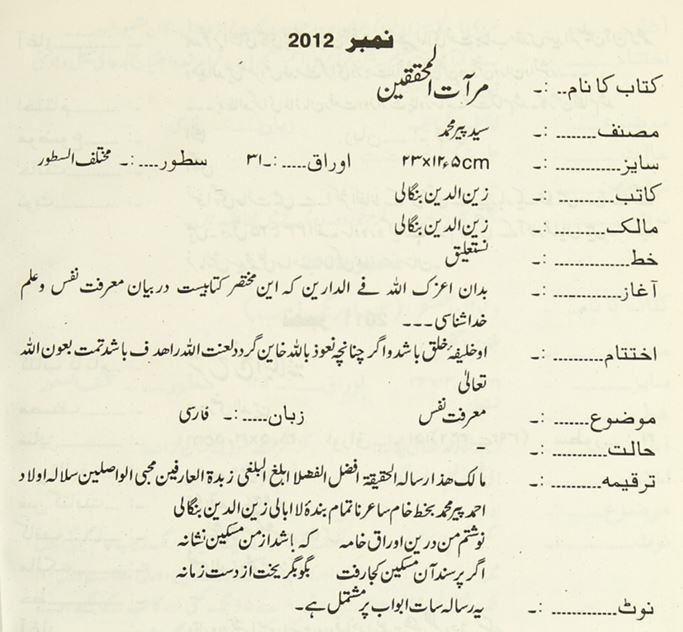 نمبر 2012
کتاب کا نام.. :۔ مرآت المحققین
مصنف........ :۔ سید پیر محمد
سایز........... :۔ ۲۳x۱۲ء۵cm اوراق.....:۔۳۱ سطور....:۔ مختلف السطور
کاتب.......... :۔ زین الدین بنگالی
مالک......... :۔ زین الدین بنگالی
خط............. :۔ نستعلیق
آغاز........... :۔ بدان اعزک اللہ فے الدارین کہ این مختصر کتابیست در بیان معرفت نفس وعلم
خداشناسی ۔۔۔
اختتام......... :۔ اوخلیفۂ خلق باشد واگر چنانچہ نعوذ باللہ خاین گردد لعنت اللہ راھدف باشد تمت بعون اللہ
تعالیٰ
موضوع....... :۔ معرفت نفس زبان.....:۔ فارسی
حالت......... :۔ ۔
ترقیمہ......... :۔ مالک ھذا رسالہ الحقیقۃ افضل الفضلا ابلغ البلغی زبدۃ العارفین محبی الواصلین سلالہ اولاد
احمد پیر محمد بخط خام ساعر ناتمام بندۂ لاابالی زین الدین بنگالی
نوشتم من درین اوراق خامہ کہ باشد از من مسکین نشانہ
اگر پرسند آن مسکین کجا رفت بگو بگریخت از دست زمانہ
نوٹ........... :۔ یہ رسالہ سات ابواب پر مشتمل ہے۔